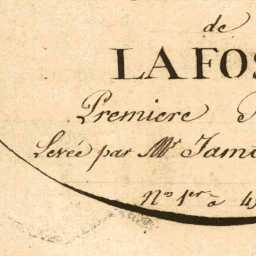 de
LAFOS
Premiere
Levée par Mr. Jam
Nos 1er à 4